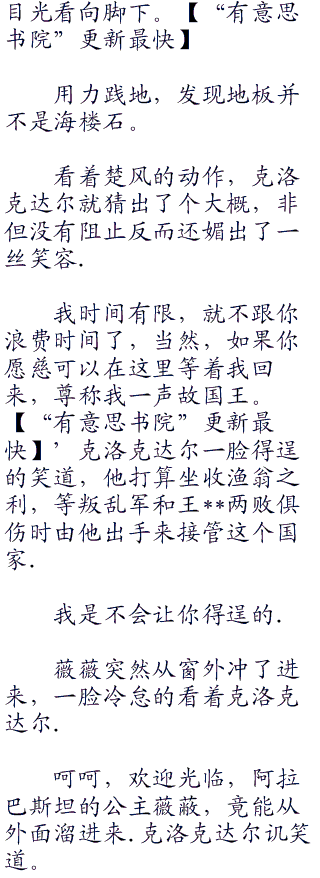 目光看向脚下。【“有意思
书院”更新最快】
用力践地，发现地板并
不是海楼石。
看着楚风的动作，克洛
克达尔就猜出了个大概，非
但没有阻止反而还媚出了一
丝笑容.
我时间有限，就不跟你
浪费时间了，当然，如果你
愿慈可以在这里等着我回
来，尊称我一声故国王。
【“有意思书院”更新最
快】’克洛克达尔一脸得逞
的笑道，他打算坐收渔翁之
利，等叛乱军和王**两败俱
伤时由他出手来接管这个国
家.
我是不会让你得逞的.
薇薇突然从窗外冲了进
来，一脸冷怠的看着克洛克
达尔.
呵呵，欢迎光临，阿拉
巴斯坦的公主薇蔽，竟能从
外面溜进来.克洛克达尔讥笑
道。